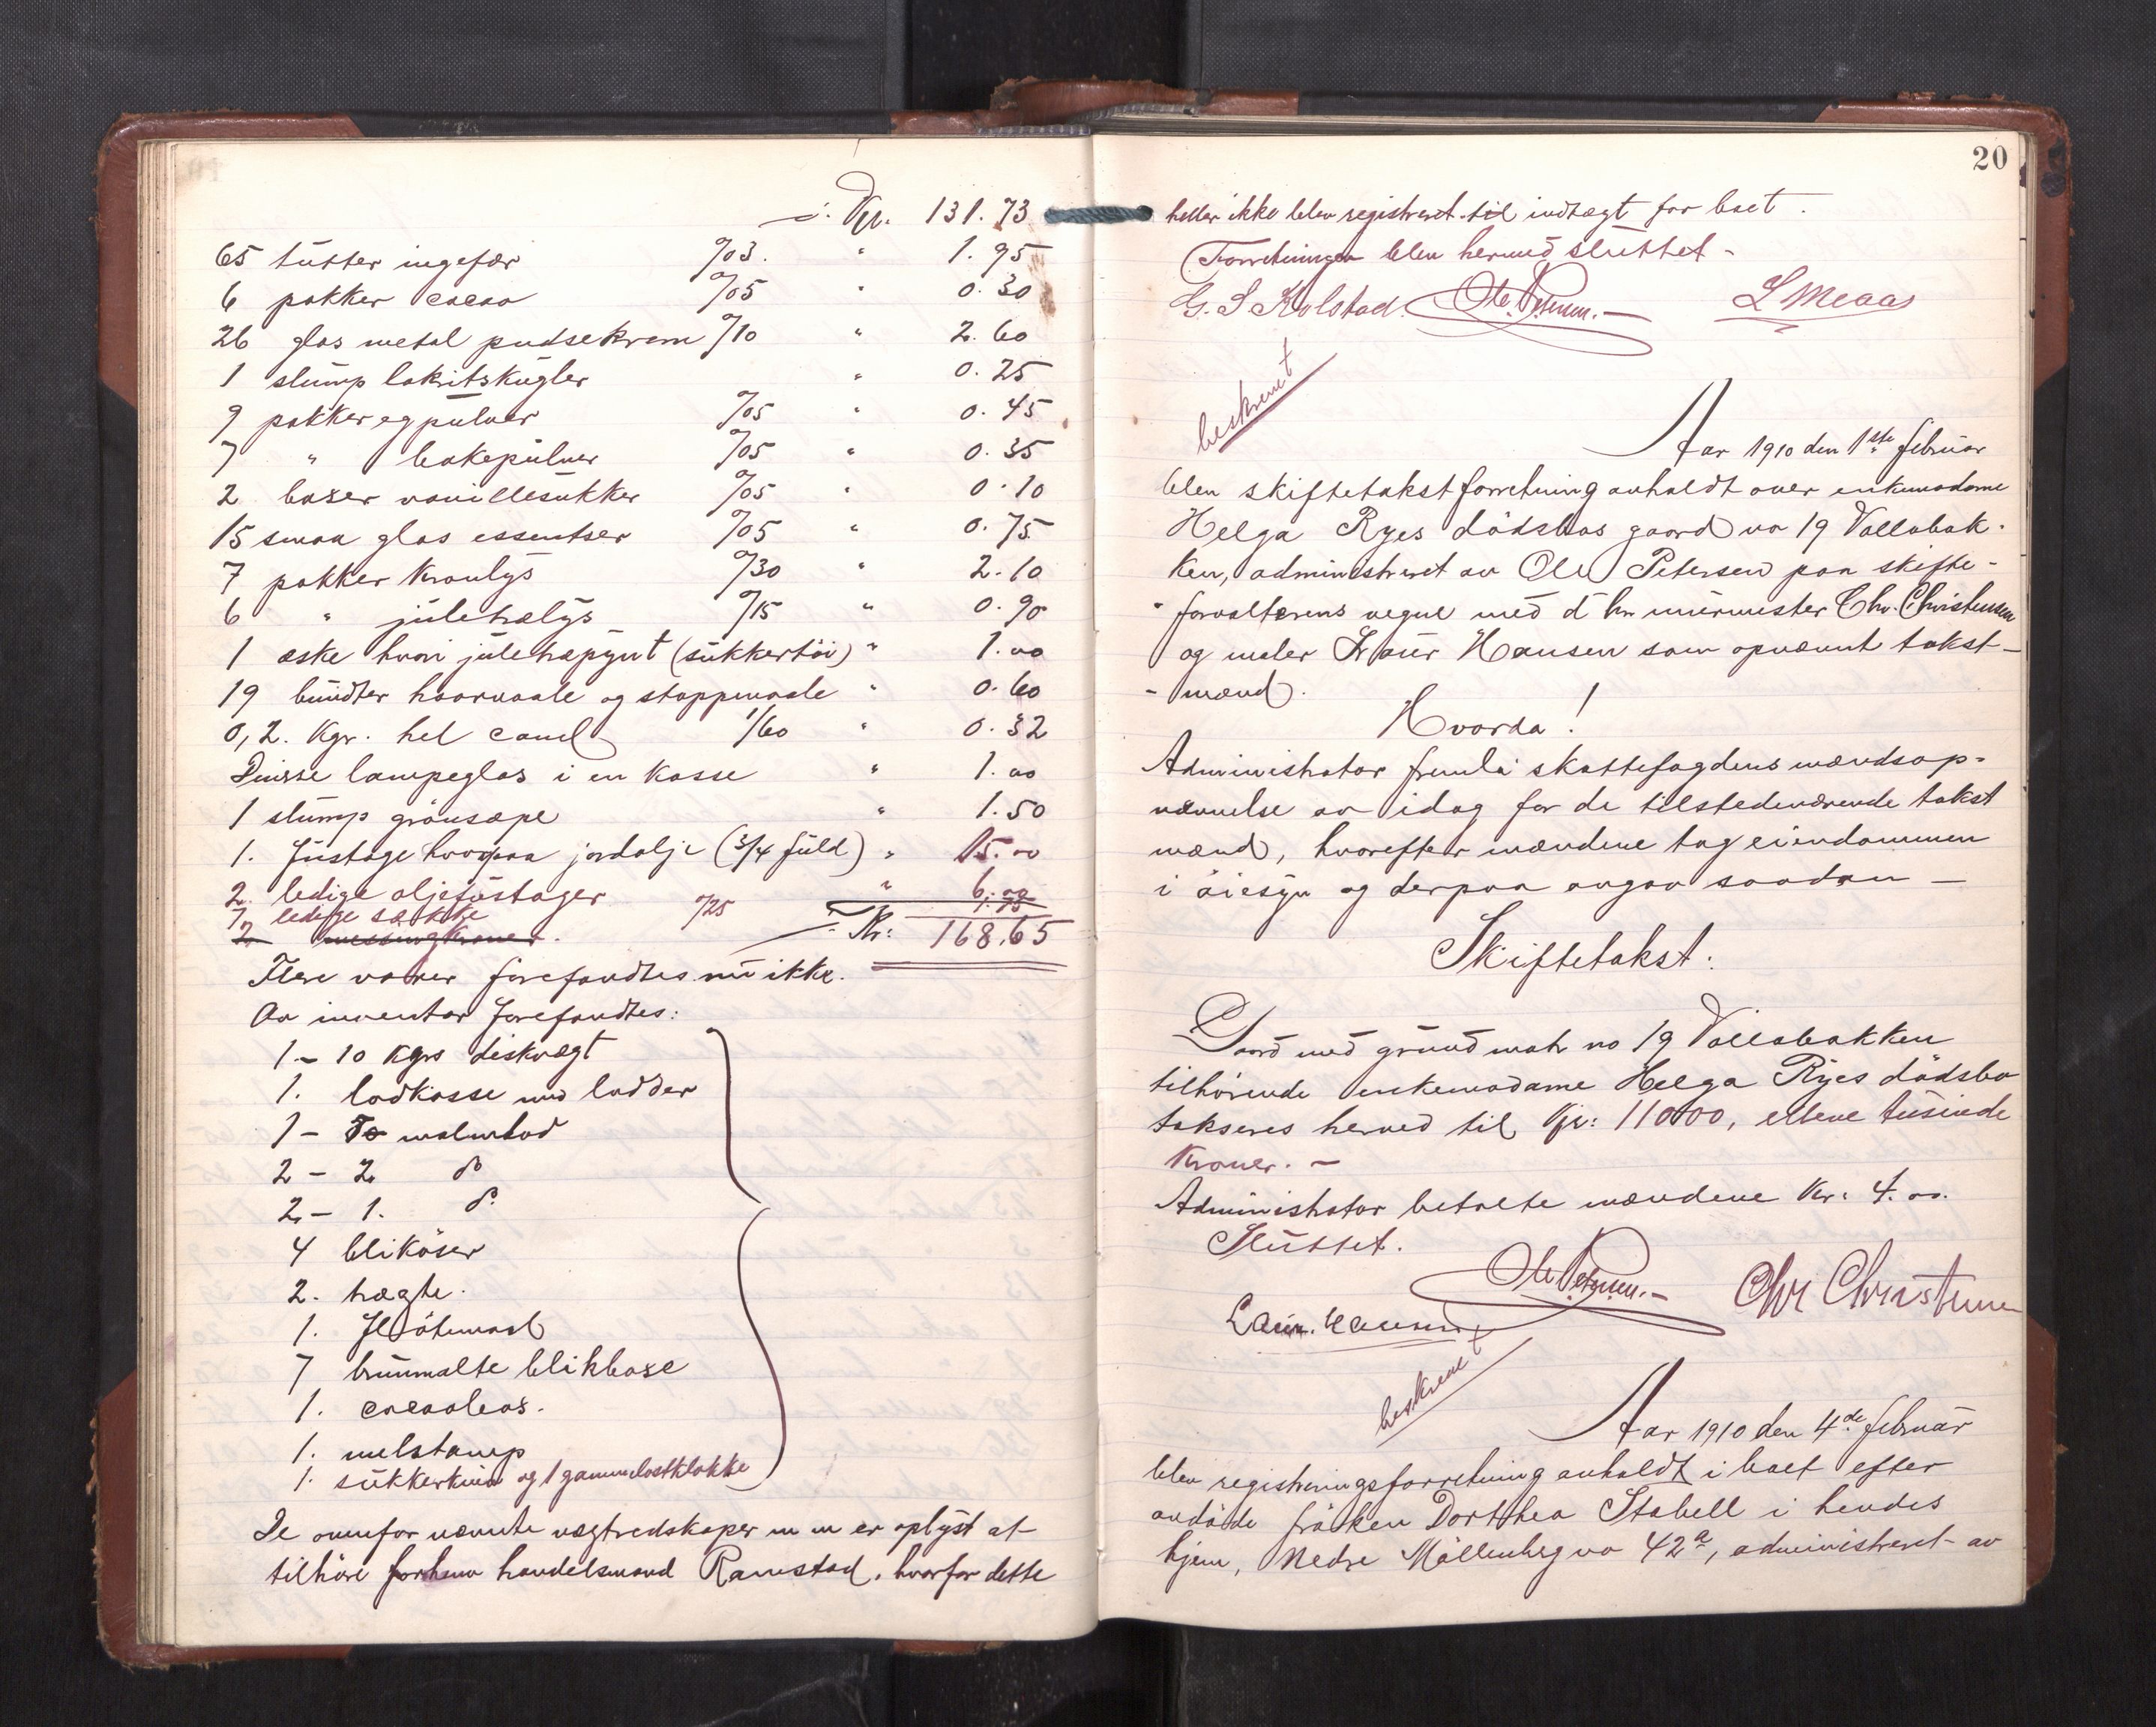 Kr. 131.73
65 tutter ingefær %03. " 1.95
6 pakker cacao %05 " 0.30
26 glas metal pudsekrem %10 " 2.60
1 slump lakritskugler " 0.25
9 pakker egpulver %05 " 0.45
7 " bakepulver %05 " 0.35
2 boxer vanillesukker %05 " 0.10
15 smaa glas essentser %05 " 0.75
7 pakker kronlys %30 " 2.10
6 " juletrælys %15 " 0.90
1 æske hvori juletræpynt (sukkertöi) " 1.00
19 bundter haarnaale og stoppenaale " 0.60
0,2. Kgr. hel canel 1/60 " 0.32
Diverse lampeglas i en kasse " 1.00
1 slump grönsæpe " 1.50
1. fustage hvorpaa jordolje (3/4 fuld) " 15.00
2. ledige oljefustager " 6.00
7 ledige sække %25 1.75
2 messingkraner. Kr: 168.65
Flere varer forefandtes nu ikke.
Av inventar forefandtes:
1 - 10 Kgrs diskvægt
1. lodkasse med lodder
1 - 5 malmlod
2 - 2 do
2 - 1. do.
4 bliköser
2. tragte.
1. Flötemaal
7 brunmalte blikboxe
1. cacaobox.
1. melstamp
1. sukkerkniv og 1 gammelostklokke
De ovenfor nævnte vægtredskaper m m er oplyst at
tilhöre forhenv handelsmand Ramstad, hvorfor dette
20
heller ikke blev registreret til indtægt for boet.
Forretningen blev hermed sluttet -
G. S Kolstad. Ole Petersen. - L Meaas
beskrevet
Aar 1910 den 1ste februar
blev skiftetakstforretning avholdt over enkemadame
Helga Ryes dödsbos gaard no 19 Vollabak-
ken, administreret av Ole Petersen paa skifte-
forvalterens vegne med d'hr murmester Chr. Christensen
og maler Laur Hansen som opnævnt takst-
- mænd.
Hvorda!
Administrator fremla skattefogdens mændsop-
nævnelse av idag for de tilstedeværende takst
mænd, hvorefter mændene tog eiendommen
i öiesyn og derpaa avgav saadan -
Skiftetakst:
Gaard med grund matr no 19 Vollabakken
tilhörende enkemadame Helga Ryes dödsbo
takseres herved til Kr: 11000, elleve tusinde
Kroner. -
Administrator betalte mændene Kr: 4.00.
Sluttet.
Ole Petersen. - Chr Christensen
Laur. Hansen
beskrevet
Aar 1910 den 4de februar
blev registreringsforretning avholdt i boet efter
avdöde fröken Dorthea Stabell i hendes
hjem, Nedre Möllenberg no 42a, administreret av